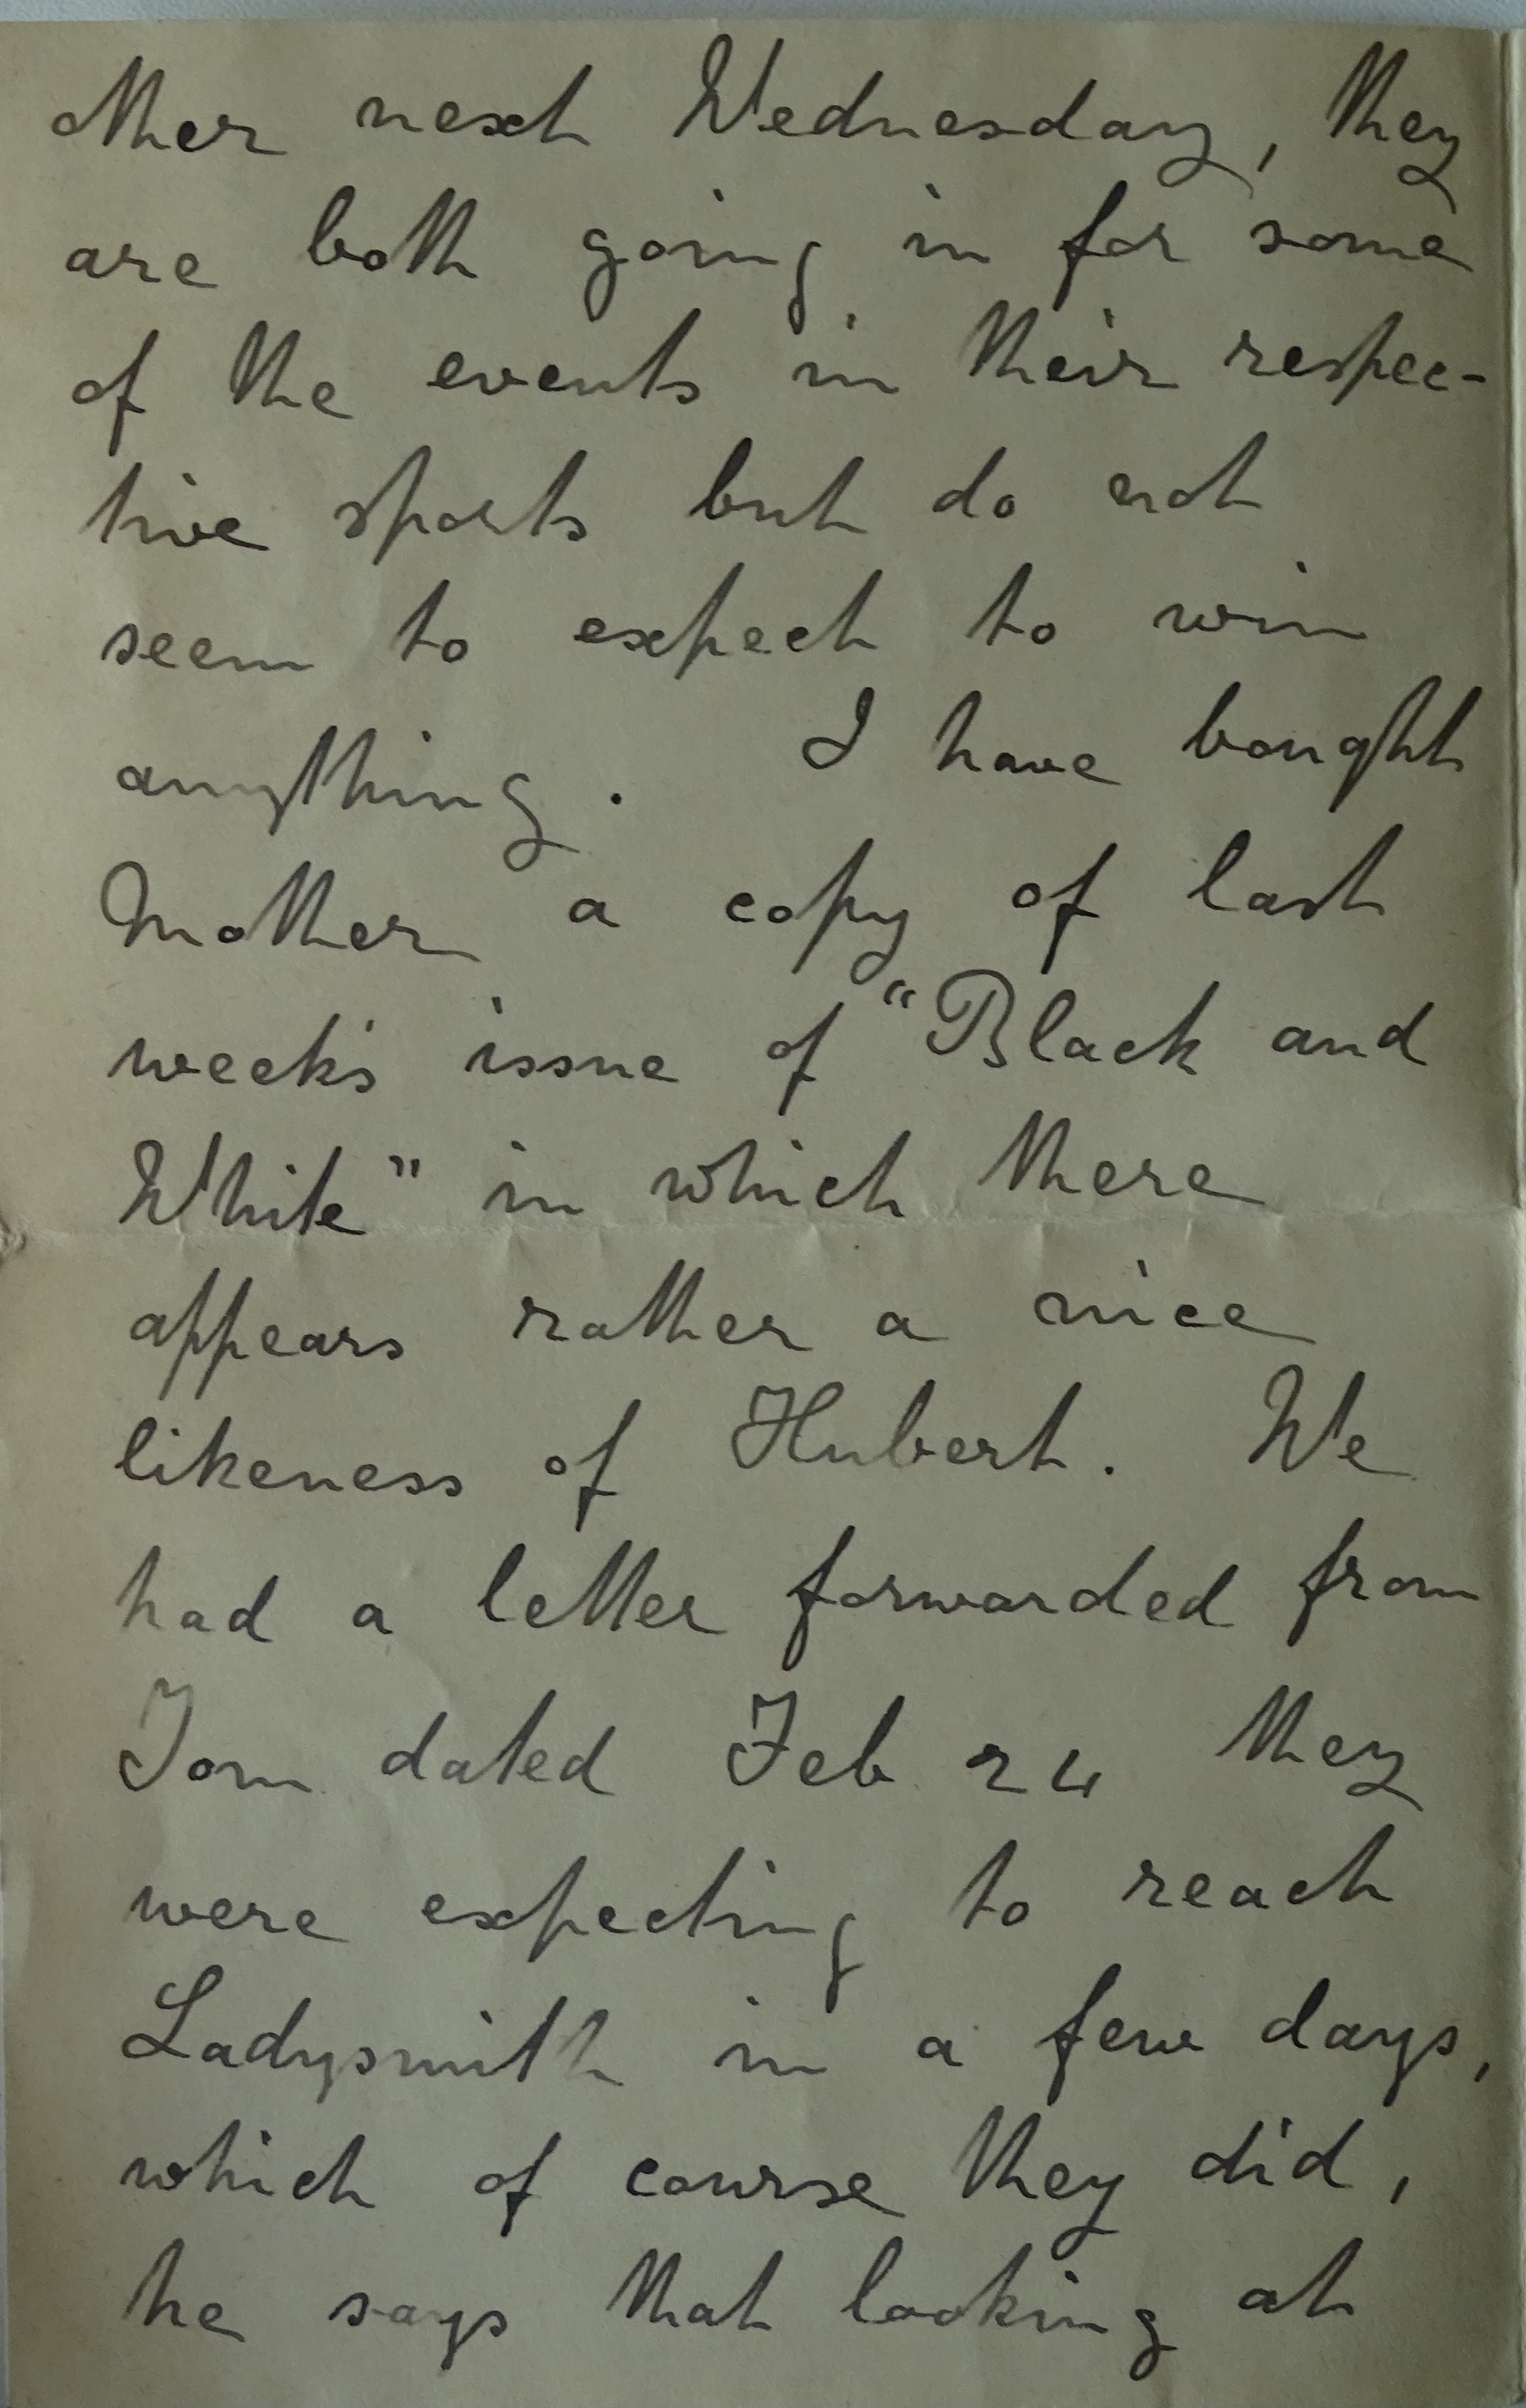 other next Wednesday, they
are both going in for some
of the events in their respec-
tive sports but do not
seem to expect to win
anything. I have bought
Mother a copy of last
week's issue of "Black and
White" in which there
appears rather a nice
likeness of Hubert. We
had a letter forwarded from
Tom dated Feb 24 they
were expecting to reach
Ladysmith in a few days,
which of course they did,
he says that looking at